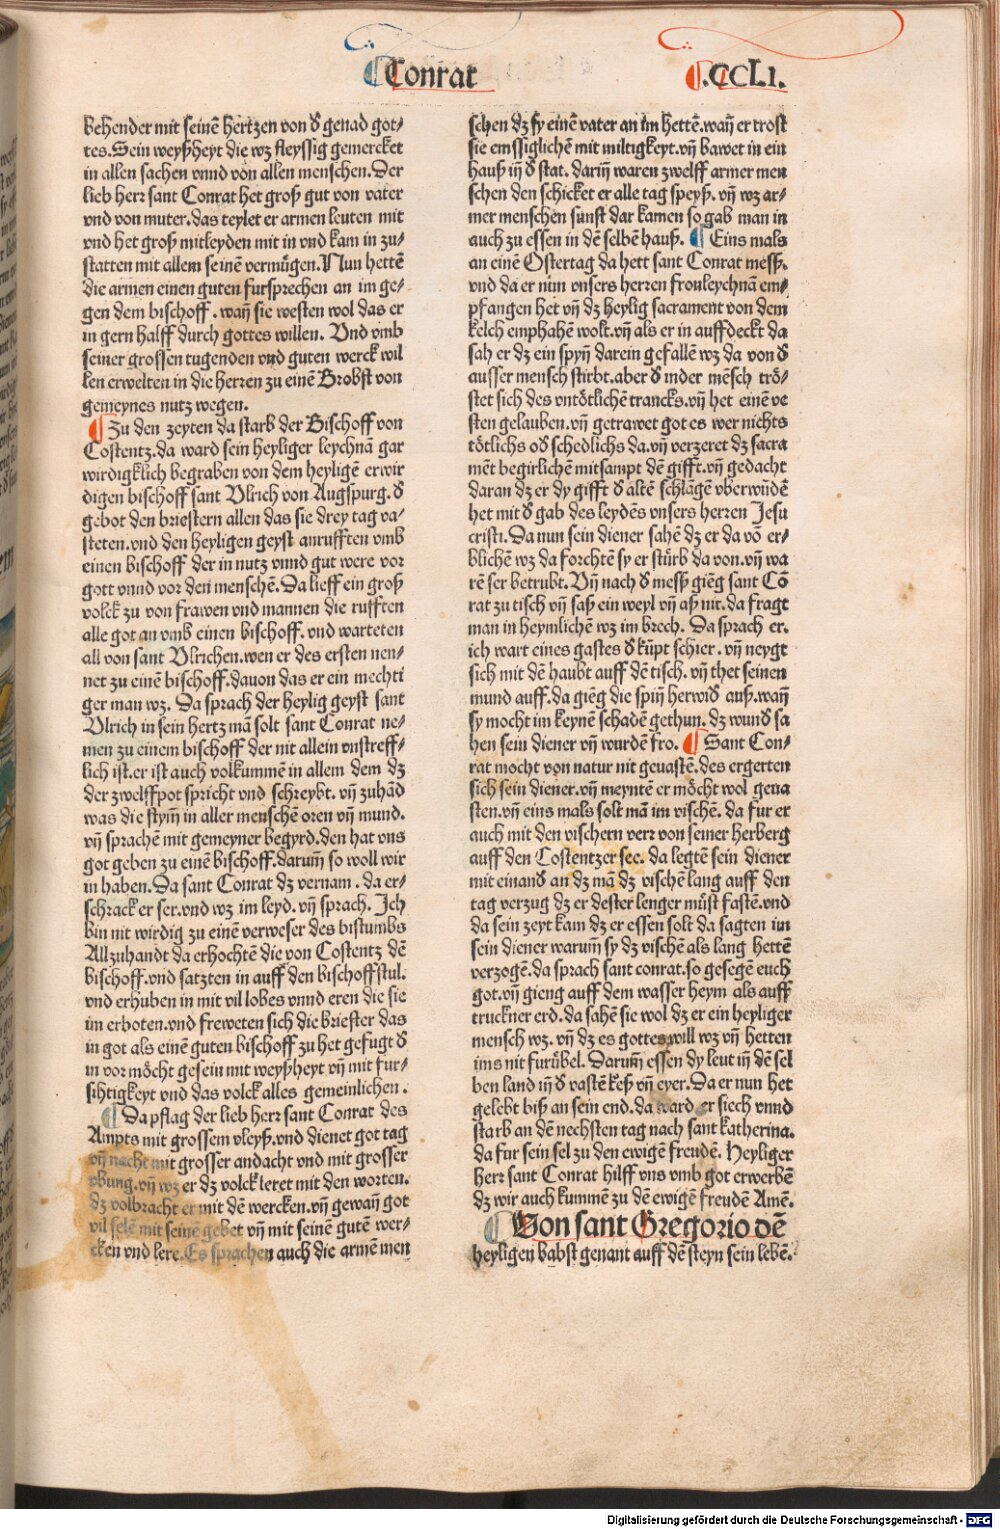 Conrat
.CCLI.
behender mit seinē hertzen von d̕ genad got⸗
tes. Sein weyßheyt die wz fleyssig gemercket
in allen sachen vnnd von allen menschen. Der
lieb herr sant Conrat het groß gut von vater
vnd von muter. das teylet er armen leuten mit
vnd het groß mitleyden mit in vnd kam in zu⸗
statten mit allem seinē vermügen. Nun hettē
die armen einen guten fürsprechen an im ge⸗
gen dem bischoff. wañ sie westen wol das er
in gern halff durch gottes willen. Vnd vmb
seiner grossen tugenden vnd guten werck wil
len erwelten in die herren zu einē Brobst von
gemeynes nutz wegen.
¶ Zu den zeyten da starb der Bischoff von
Costentz. da ward sein heyliger leychnā gar
wirdigklich begraben von dem heyligē erwir
digen bischoff sant Vlrich von Augspurg. d̕
gebot den briestern allen das sie drey tag va⸗
steten. vnd den heyligen geyst anrufften vmb
einen bischoff der in nutz vnnd gut were vor
gott vnnd vor den menschē. Da lieff ein groß
volck zu von frawen vnd mannen die rufften
alle got an vmb einen bischoff. vnd warteten
all von sant Vlrichen. wen er des ersten nen⸗
net zu einē bischoff. dauon das er ein mechti
ger man wz. Da sprach der heylig geyst sant
Vlrich in sein hertz mā solt sant Conrat ne⸗
men zu einem bischoff der nit allein vnstreff⸗
lich ist. er ist auch volkummē in allem dem dz
der zwelffpot spricht vnd schreybt. vñ zuhād
was die stym̄ in aller menschē oren vñ mund.
vñ sprachē mit gemeyner begyrd. den hat vns
got geben zu einē bischoff. darum̄ so woll wir
in haben. Da sant Conrat dz vernam. da er⸗
schrack er ser. vnd wz im leyd. vñ sprach. Ich
bin nit wirdig zu einē verweser des bistumbs
Allzuhandt da erhochtē die von Costentz dē
bischoff. vnd satzten in auff den bischoffstul.
vnd erhuben in mit vil lobes vnnd eren die sie
im erboten. vnd freweten sich die briester das
in got als einē guten bischoff zu het gefugt d̕
in vor möcht gesein mit weyßheyt vñ mit fur⸗
sihtigkeyt vnd das volck alles gemeinlichen.
¶ Da pflag der lieb herr sant Conrat des
Ampts mit grossem vleyß. vnd dienet got tag
vñ nacht mit grosser andacht vnd mit grosser
vbung. vñ wz er dz volck leret mit den worten.
dz volbracht er mit dē wercken. vñ gewañ got
vil selē mit seinē gebet vñ mit seinē gutē wer⸗
cken vnd lere. Es sprachen auch die armē men
schen dz sy einē vater an im hettē. wañ er trost
sie emssiglichē mit miltigkeyt. vñ bawet in ein
hauß iñ d̕ stat. dariñ waren zwelff armer men
schen den schicket er alle tag speyß. vñ wz ar⸗
mer menschen sunst dar kamen so gab man in
auch zu essen in dē selbē hauß. ¶ Eins mals
an einē Ostertag da hett sant Conrat messß.
vnd da er nun vnsers herren fronleychnā em⸗
pfangen het vñ dz heylig sacrament von dem
kelch emphahē wolt. vñ als er in auffdeckt da
sah er dz ein spyñ darein gefallē wz da von d̕
ausser mensch stirbt. aber d̕ inder mēsch trö⸗
stet sich des vntötlichē trancks. vñ het einē ve
sten gelauben. vñ getrawet got es wer nichts
tötlichs od̕ schedlichs da. vñ verzeret dz sacra
mēt begirlichē mitsampt dē gifft. vñ gedacht
daran dz er dy gifft d̕ altē schlāgē vberwūdē
het mit d̕ gab des leydēs vnsers herren Jesu
cristi. Da nun sein diener sahē dz er da vō er⸗
blichē wz da forchtē sy er stürb da von. vñ wa
rē ser betrubt. Vñ nach d̕ messß gieng sant Cō
rat zu tisch vñ saß ein weyl vñ aß nit. da fragt
man in heymlichē wz im brech. Da sprach er.
ich wart eines gastes d̕ kūpt schier. vñ neygt
sich mit dē haubt auff dē tisch. vñ thet seinen
mund auff. da gieng die spiñ herwid̕ auß. wañ
sy mocht im keynē schadē gethun. dz wund̕ sa
hen sein diener vñ wurdē fro. ¶ Sant Con⸗
rat mocht von natur nit geuastē. des ergerten
sich sein diener. vñ meyntē er möcht wol geua
sten. vñ eins mals solt mā im vischē. da fur er
auch mit den vischern verr von seiner herberg
auff den Costentzer see. da legtē sein diener
mit einand̕ an dz mā dz vischē lang auff den
tag verzug dz er dester lenger müst fastē. vnd
da sein zeyt kam dz er essen solt da sagten im
sein diener warum̄ sy dz vischē als lang hettē
verzogē. da sprach sant conrat. so gesegē euch
got. vñ gieng auff dem wasser heym als auff
truckner erd. da sahē sie wol dz er ein heyliger
mensch wz. vñ dz es gottes will wz vñ hetten
ims nit furübel. Darum̄ essen dy leut iñ dē sel
ben land iñ d̕ vastē keß vñ eyer. Da er nun het
gelebt biß an sein end. da ward er siech vnnd
starb an dē nechsten tag nach sant katherina.
da fur sein sel zu den ewigē freudē. Heyliger
herr sant Conrat hilff vns vmb got erwerbē
dz wir auch kummē zu dē ewigē freudē Amē.
¶ Von sant Gregorio dē
heyligen babst genant auff dē steyn sein lebē.
Digitalisierung gefördert durch die Deutsche Forschungsgemeinschaft - DFG